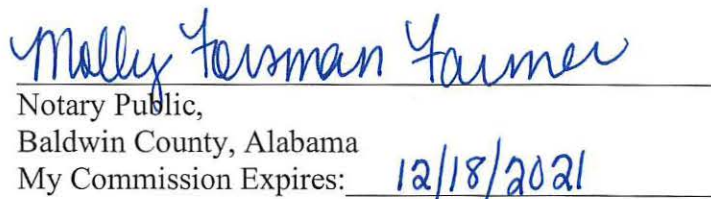 Molly Forsman Farmer
Notary Public,
Baldwin County, Alabama
My Commission Expires: 12/18/2021